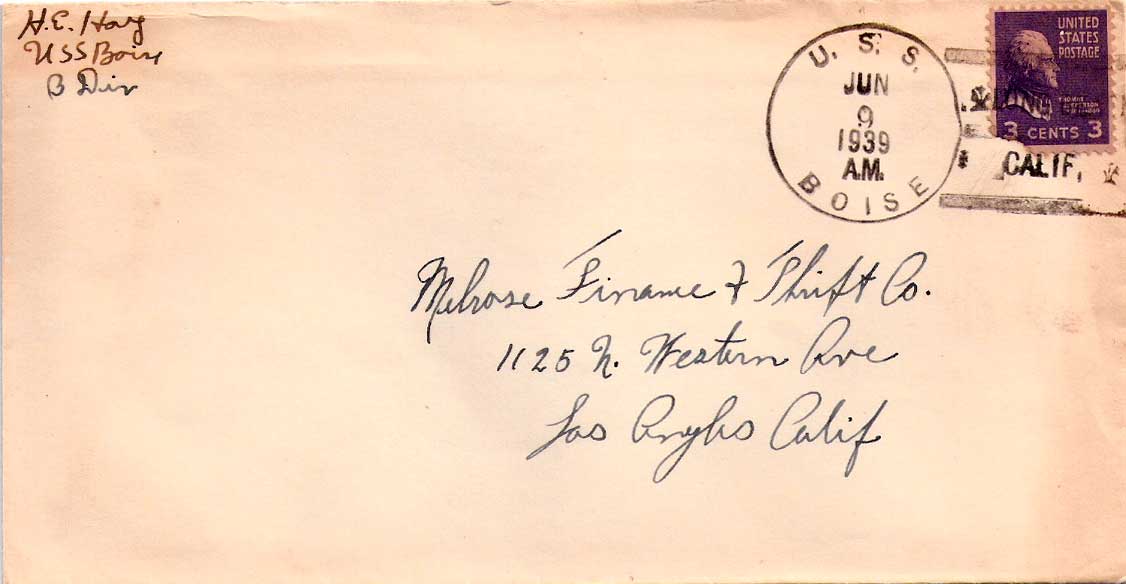 H.E. Hoag
USS Boise
B Div
U. S. S.
JUN
9
1939
A.M.
BOISE
UNITED
STATES
POSTAGE
3 CENTS 3
CALIF.
Melrose Finance & Thrift Co.
1125 N. Western Ave
Los Angles Calif